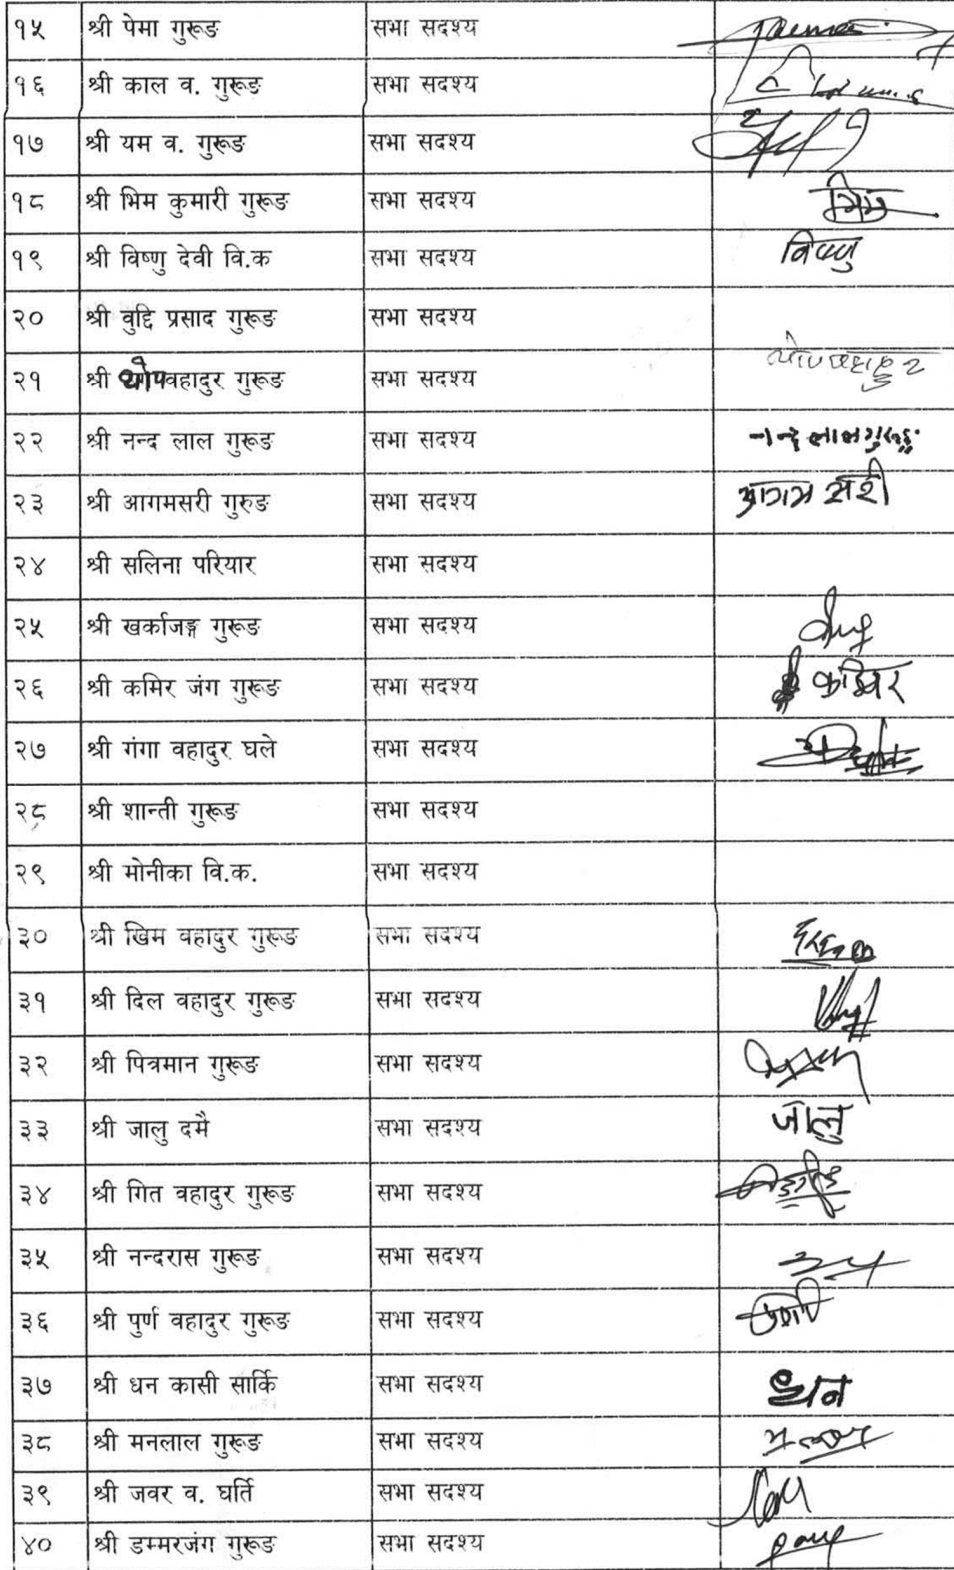 १५ श्री पेमा गुरूङ सभा सदश्य
१६ श्री काल व. गुरूङ सभा सदश्य
१७ श्री यम व. गुरूङ सभा सदश्य
१८ श्री भिम कुमारी गुरूङ सभा सदश्य भिम
१९ श्री विष्णु देवी वि.क सभा सदश्य विष्णु
२० श्री वुद्दि प्रसाद गुरूङ सभा सदश्य
२१ श्री थोपवहादुर गुरूङ सभा सदश्य थोपबहादुर
२२ श्री नन्द लाल गुरूङ सभा सदश्य नन्दलालगुरूङ
२३ श्री आगमसरी गुरुङ सभा सदश्य आगम सरी
२४ श्री सलिना परियार सभा सदश्य
२५ श्री खर्काजङ्ग गुरूङ सभा सदश्य
२६ श्री कमिर जंग गुरूङ सभा सदश्य
२७ श्री गंगा वहादुर घले सभा सदश्य
२८ श्री शान्ती गुरूङ सभा सदश्य
२९ श्री मोनीका वि.क. सभा सदश्य
३० श्री खिम वहादुर गुरूङ सभा सदश्य
३१ श्री दिल वहादुर गुरूङ सभा सदश्य
३२ श्री पित्रमान गुरूङ सभा सदश्य
३३ श्री जालु दमै सभा सदश्य जालु
३४ श्री गित वहादुर गुरूङ सभा सदश्य
३५ श्री नन्दरास गुरूङ सभा सदश्य
३६ श्री पुर्ण वहादुर गुरूङ सभा सदश्य
३७ श्री धन कासी सार्कि सभा सदश्य धन
३८ श्री मनलाल गुरूङ सभा सदश्य
३९ श्री जवर व. घर्ति सभा सदश्य
४० श्री डम्मरजंग गुरूङ सभा सदश्य